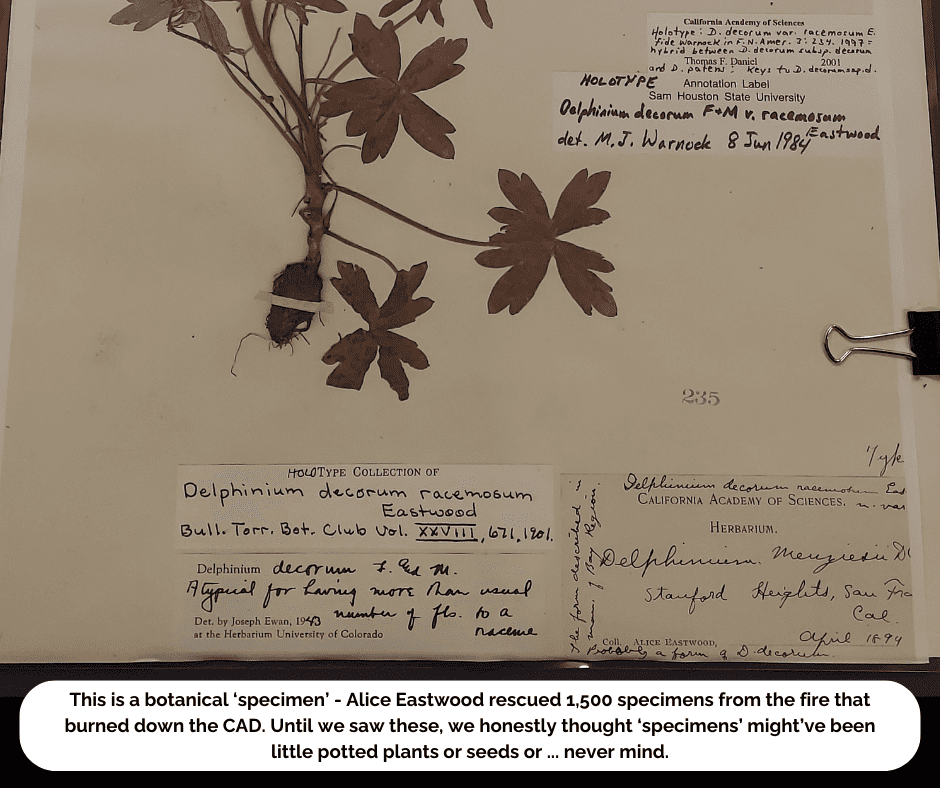 California Academy of Sciences
Holotype: D. decorum var. racemosum E.
fide Warnock in F.N.Amer. 3: 234. 1997 =
hybrid between D. decorum subsp. decorum
Thomas F. Daniel 2001
and D. patens; Keys to D. decorum ssp. d.
HOLOTYPE Annotation Label
Sam Houston State University
Delphinium decorum F+M v. racemosum
Eastwood
det. M.J. Warnock 8 Jun 1984
235
Type
HOLOTYPE COLLECTION OF
Delphinium decorum racemosum
Eastwood
Bull. Torr. Bot. Club Vol. XXVIII, 671, 1901.
Delphinium decorum F. & M.
Atypical for having more than usual
number of fls. to a
raceme
Det. by Joseph Ewan, 1943
at the Herbarium University of Colorado
Delphinium decorum racemosum Eas
n. var
CALIFORNIA ACADEMY OF SCIENCES.
HERBARIUM.
Delphinium Menziesii D
Stanford Heights, San Fra
Cal.
April 1894
Coll. ALICE EASTWOOD,
Probably a form of D. decorum.
The form described in
man. of Bay Region.
This is a botanical ‘specimen’ - Alice Eastwood rescued 1,500 specimens from the fire that
burned down the CAD. Until we saw these, we honestly thought ‘specimens’ might’ve been
little potted plants or seeds or ... never mind.